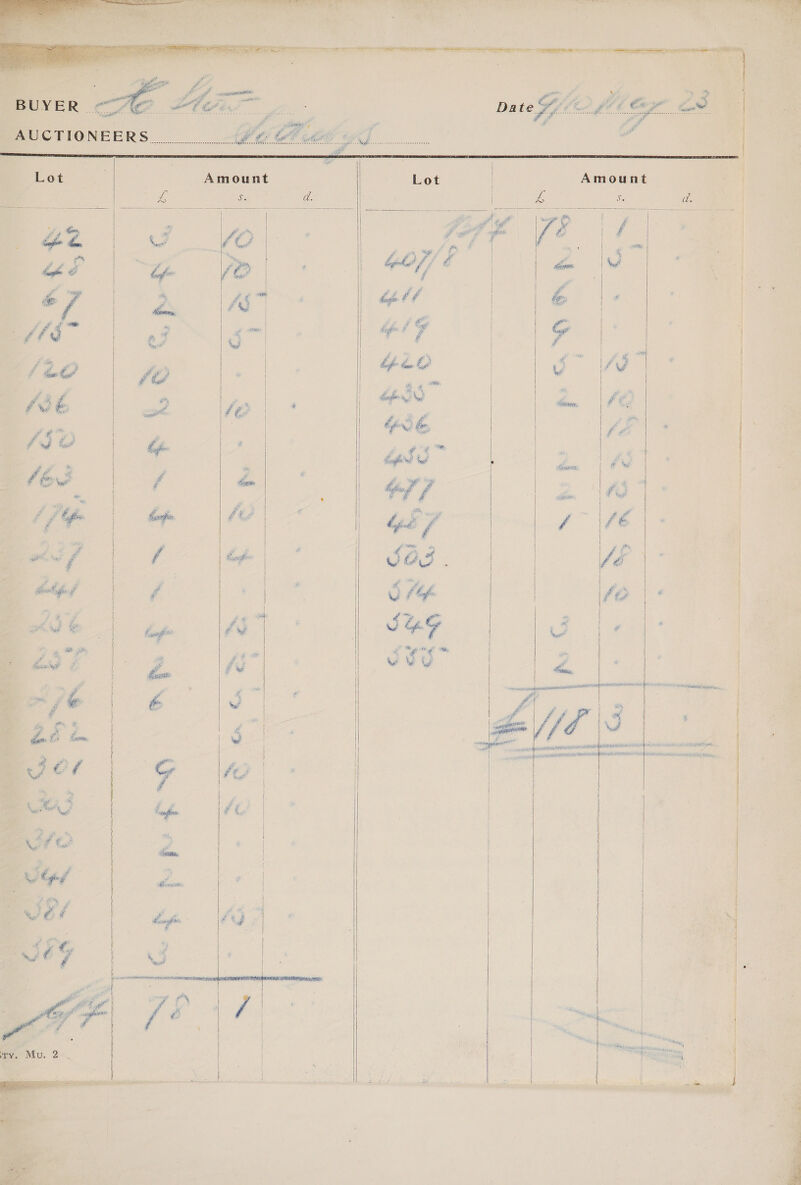 BUYER H Stow Date 9/10 May 23
AUCTIONEERS Sothebys
Lot Amount Lot Amount
£ s. d. £ s. d.
42 3 10 -
48 4 10 -
67 2 15 -
115 3 5 -
120 10 - -
136 2 10 -
150 4 - -
163 1 2 -
174 4 10 -
237 1 4 -
241 1 - -
256 4 15 -
258 2 15 -
276 6 5 -
282 5 -
301 9 10 -
303 4 10 -
310 2 - -
341 2 - -
381 4 15 -
389 3 - -
c/f 78 1 -
B/f 78 1
407/8 2 5 -
411 6 - -
419 9 - -
420 5 15 -
435 2 10 -
436 18 -
455 2 15 -
477 2 15 -
487 1 16 -
503 . 18 -
514 10 -
549 3 - -
555 2 - -
£ 118 3 -
Mu. 2